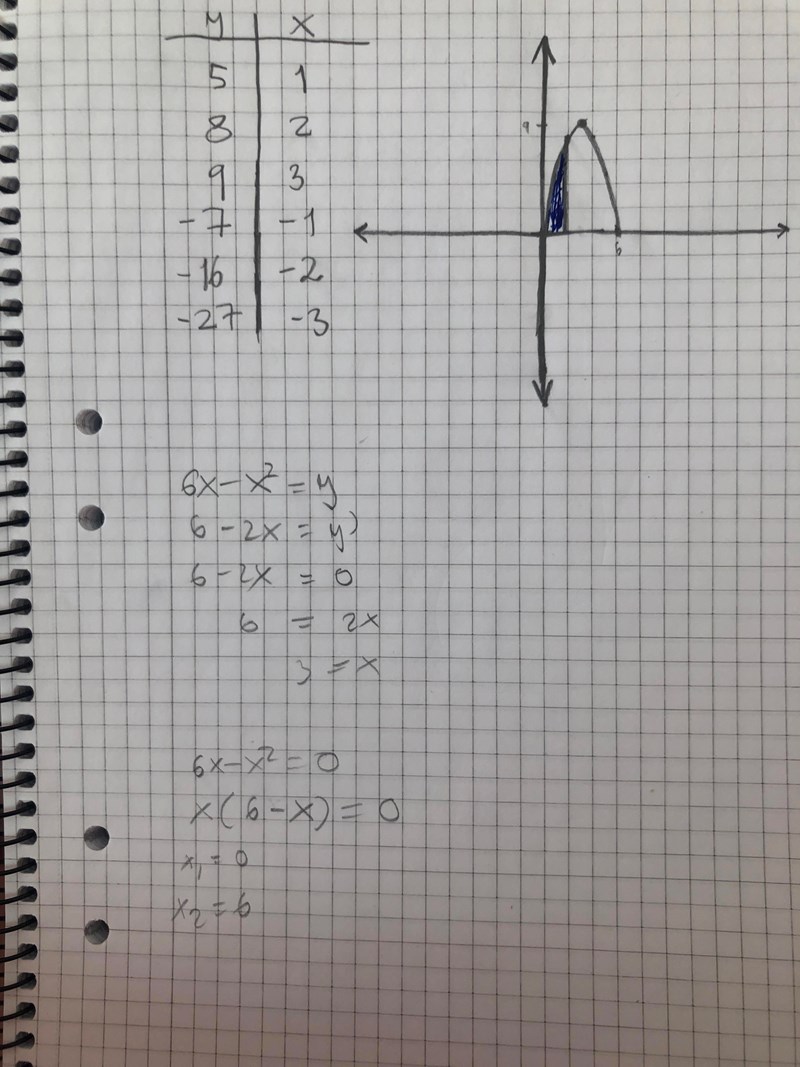 y x
5 1
8 2
9 3
-7 -1
-16 -2
-27 -3
9
6
6x-x²=y
6-2x=y'
6-2x=0
6=2x
3=x
6x-x²=0
x(6-x)=0
x₁=0
x₂=6